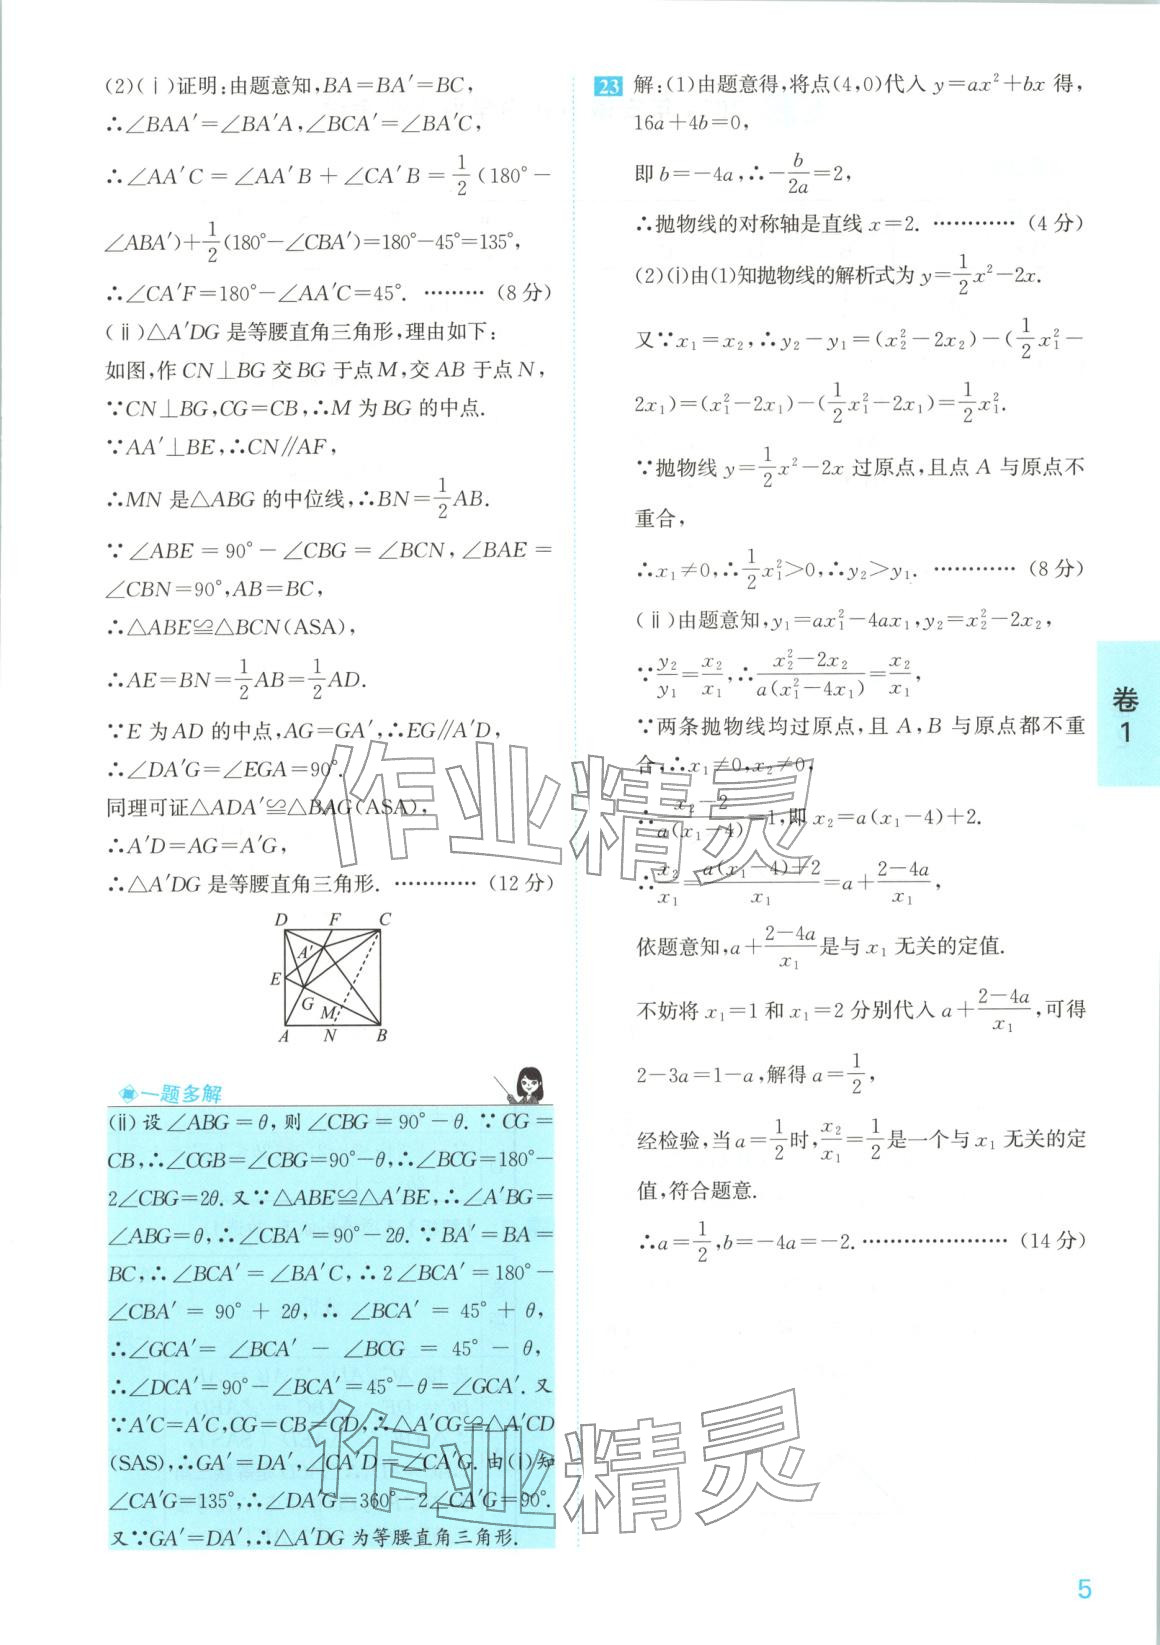 (2)(ⅰ)证明:由题意知,BA=BA′=BC,
∴∠BAA′=∠BA′A,∠BCA′=∠BA′C,
∴∠AA′C=∠AA′B+∠CA′B=1/2(180°-
∠ABA′)+1/2(180°-∠CBA′)=180°-45°=135°,
∴∠CA′F=180°-∠AA′C=45°. ……… (8分)
(ⅱ)△A′DG是等腰直角三角形,理由如下:
如图,作CN⊥BG交BG于点M,交AB于点N,
∵CN⊥BG,CG=CB,∴M为BG的中点.
∵AA′⊥BE,∴CN∥AF,
∴MN是△ABG的中位线,∴BN=1/2AB.
∵∠ABE=90°-∠CBG=∠BCN,∠BAE=
∠CBN=90°,AB=BC,
∴△ABE≌△BCN(ASA),
∴AE=BN=1/2AB=1/2AD.
∵E为AD的中点,AG=GA′,∴EG∥A′D,
∴∠DA′G=∠EGA=90°.
同理可证△ADA′≌△BAG(ASA),
∴A′D=AG=A′G,
∴△A′DG是等腰直角三角形. ………… (12分)
D F C
A′
E
G M
A N B
一题多解
(ⅱ)设∠ABG=θ,则∠CBG=90°-θ. ∵CG=
CB,∴∠CGB=∠CBG=90°-θ,∴∠BCG=180°-
2∠CBG=2θ. 又∵△ABE≌△A′BE,∴∠A′BG=
∠ABG=θ,∴∠CBA′=90°-2θ. ∵BA′=BA=
BC,∴∠BCA′=∠BA′C,∴2∠BCA′=180°-
∠CBA′=90°+2θ,∴∠BCA′=45°+θ,
∴∠GCA′=∠BCA′-∠BCG=45°-θ,
∴∠DCA′=90°-∠BCA′=45°-θ=∠GCA′. 又
∵A′C=A′C,CG=CB=CD,∴△A′CG≌△A′CD
(SAS),∴GA′=DA′,∠CA′D=∠CA′G. 由(ⅰ)知
∠CA′G=135°,∴∠DA′G=360°-2∠CA′G=90°.
又∵GA′=DA′,∴△A′DG为等腰直角三角形.
23 解:(1)由题意得,将点(4,0)代入y=ax²+bx得,
16a+4b=0,
即b=-4a,∴-b/2a=2,
∴抛物线的对称轴是直线x=2. ………… (4分)
(2)(ⅰ)由(1)知抛物线的解析式为y=1/2x²-2x.
又∵x₁=x₂,∴y₂-y₁=(x₂²-2x₂)-(1/2x₁²-
2x₁)=(x₁²-2x₁)-(1/2x₁²-2x₁)=1/2x₁².
∵抛物线y=1/2x²-2x过原点,且点A与原点不
重合,
∴x₁≠0,∴1/2x₁²>0,∴y₂>y₁. ………… (8分)
(ⅱ)由题意知,y₁=ax₁²-4ax₁,y₂=x₂²-2x₂,
∵y₂/y₁=x₂/x₁,∴(x₂²-2x₂)/a(x₁²-4x₁)=x₂/x₁,
∵两条抛物线均过原点,且A,B与原点都不重
合,∴x₁≠0,x₂≠0,
∴(x₂-2)/a(x₁-4)=1,即x₂=a(x₁-4)+2.
∴x₂/x₁=(a(x₁-4)+2)/x₁=a+(2-4a)/x₁,
依题意知,a+(2-4a)/x₁是与x₁无关的定值.
不妨将x₁=1和x₁=2分别代入a+(2-4a)/x₁,可得
2-3a=1-a,解得a=1/2,
经检验,当a=1/2时,x₂/x₁=1/2是一个与x₁无关的定
值,符合题意.
∴a=1/2,b=-4a=-2. ………………… (14分)
卷
1
作业精灵
作业精灵
5